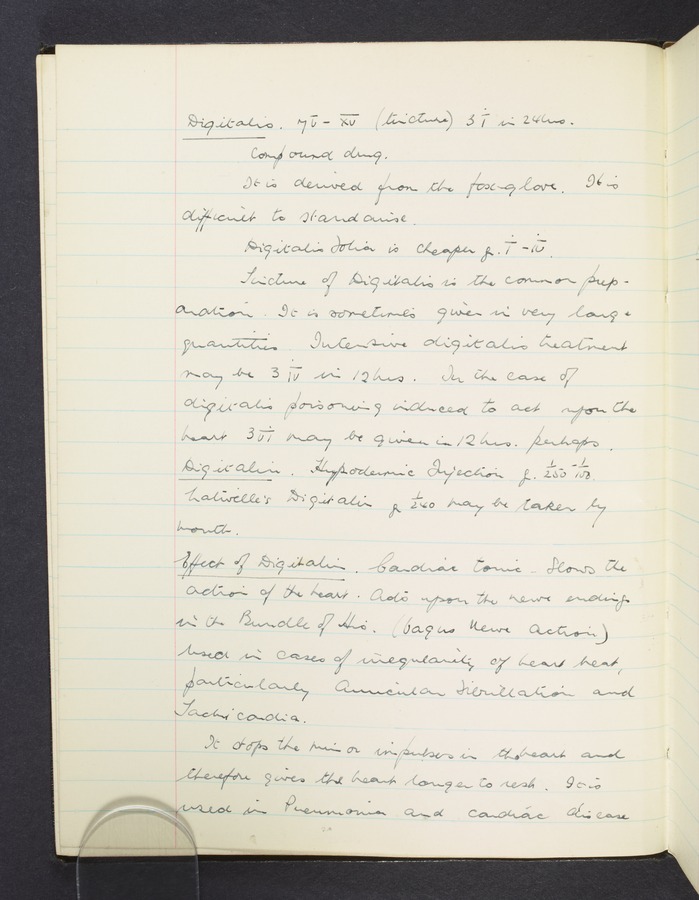 Digitalis. ♏v̄ - x̄v̄ (tincture) ʒ i in 24 hrs.
Compound drug.
It is derived from the fox-glove. It is
difficult to standarise.
Digitalis Folia is cheaper g. i - ii
Tincture of Digitalis is the common prep-
aration. It is sometimes given in very large
quantities. Intensive digitalis treatment
may be ʒ iv in 12 hrs. In the case of
digitalis poisoning induced to act upon the
heart ʒ vi may be given in 12 hrs. perhaps.
Digitalin. Hypodermic Injection g. 1/250 - 1/100.
Digitalin g 1/240 may be taken by
mouth.
Effect of Digitalin. Cardiac tonic. Slows the
action of the heart. Acts upon the nerve endings
in the Bundle of His. (Vagus Nerve Action)
Used in cases of irregularity of heart beat,
particularly Auricular Fibrillation and
Tachicardia.
It stops the minor impulses in the heart and
therefore gives the heart longer to rest. It is
used in Pneumonia and cardiac disease